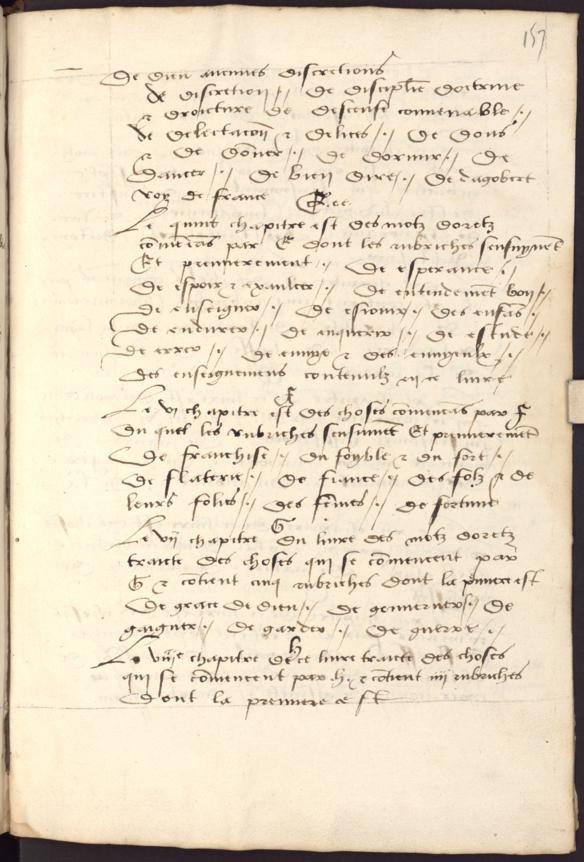 157
De dieu aucunes discretions
de discretion // De discipline doctrine
& droicture de deffense convenable //
de delectacion & delices // De dons
& De donner // de dormir // De
dancer // De bien dire // De dagobert
roy de france E. ee.
Le quint chapitre est des motz doretz
comencas par E dont les rubriches sensuyvent
Et premierement // De esperance //
De espoir & exaulcer // De entendement bon //
De enseigner // De // des enfans //
De endurer // De enquerir // De estude //
De errer // De envye & des envyeulx //
des enseignemens contenulz en ce livre
F
Le vi chapitre est des choses comencas par F
du quel les rubriches sensuivent Et premierement
De franchise // du foyble & du fort //
De flaterie // De fiance // des folz & de
leurs folies // des femes // de fortune
G
Le vij chapitre du livre des motz doretz
traicte des choses qui se comencent par
G & cotient cinq rubriches dont la pmiere est
De grace de dieu // De gouverner // De
gaigner // De garder // De guerre //
h
Le viije chapitre de ce livre traicte des choses
qui se comencent par h. & cotient iiij rubriches
Dont la premiere est